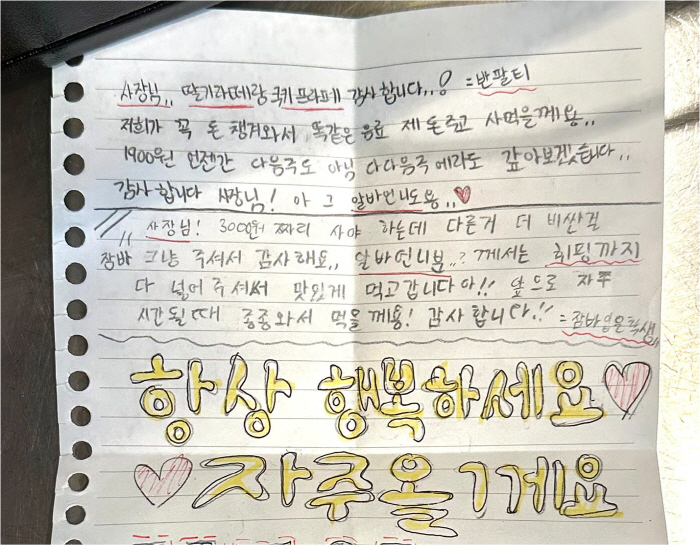 사장님,, 딸기라떼랑 쿠키프라페 감사합니다..! =반팔티
저희가 꼭 돈 챙겨와서 똑같은 음료 제 돈주고 사먹을께용..
1900원 언젠간 다음주도 아님 다다음주에라도 갚아보겠습니다..
감사합니다 사장님! 아 그 알바언니도용..♥
사장님! 3000원 짜리 사야 하는데 다른거 더 비싼걸
그냥 주셔서 감사해요.. 알바언니분..? 께서는 휘핑까지
다 넣어주셔서 맛있게 먹고갑니다아!! 앞으로 자주
시간될때 종종와서 먹을께용! 감사합니다!! =잠바입은학생
항상 행복하세요♥
♥자주올게요